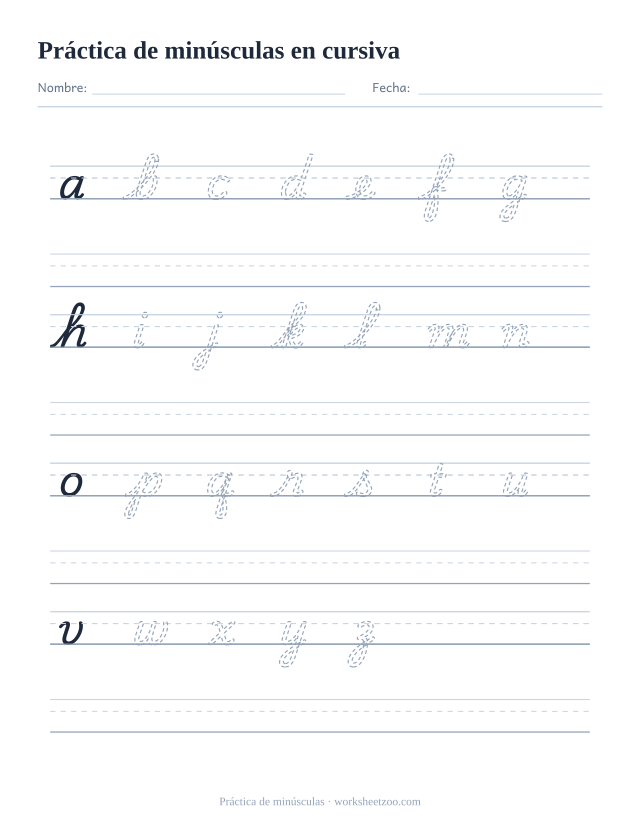 Práctica de minúsculas en cursiva
Nombre: Fecha:
a b c d e f g
h i j k l m n
o p q r s t u
v w x y z
Práctica de minúsculas · worksheetzoo.com